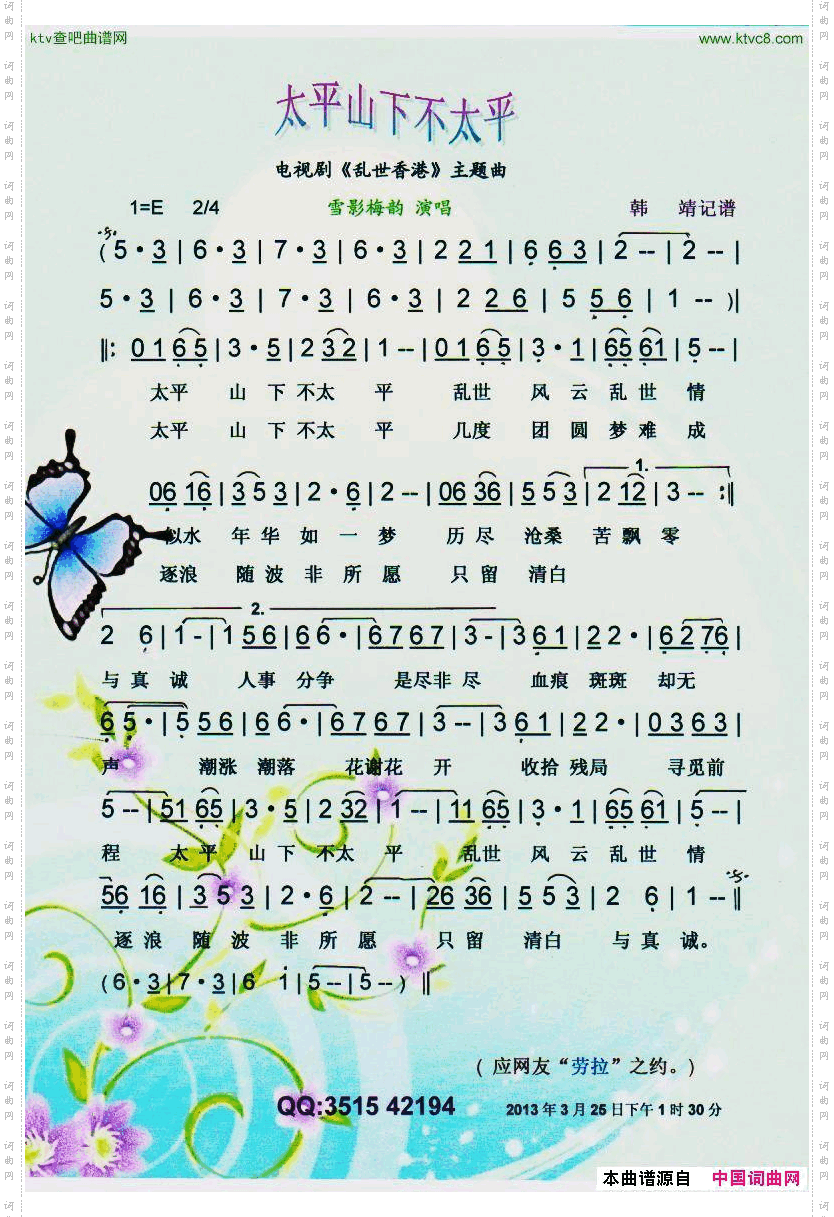 ktv查吧曲谱网 www.ktvc8.com
太平山下不太平
电视剧《乱世香港》主题曲
1=E 2/4 雪影梅韵 演唱 韩 靖记谱
(5·3|6·3|7·3|6·3|2 2 1|6 6 3|2 --|2 --|
5·3|6·3|7·3|6·3|2 2 6|5 5 6|1 --)‖
‖: 0 1 6 5|3·5|2 3 2|1 --|0 1 6 5|3·1|65 61|5 --|
太平 山 下 不太 平 乱世 风 云 乱 世 情
太平 山 下 不太 平 几度 团 圆 梦 难 成
1.
06 16|3 5 3|2·6|2 --|06 36|5 5 3|2 12|3 -- :‖
似水 年 华 如 一 梦 历 尽 沧桑 苦 飘 零
逐浪 随 波 非 所 愿 只 留 清白
2.
2 6|1 -|1 5 6|6 6·|6 7 6 7|3 -|3 6 1|2 2·|6 2 76|
与 真 诚 人事 分争 是尽非 尽 血痕 斑斑 却无
6 5·|5 5 6|6 6·|6 7 6 7|3 --|3 6 1|2 2·|0 3 6 3|
声 潮涨 潮落 花谢花 开 收拾 残局 寻觅前
5 --|51 65|3·5|2 32|1 --|11 65|3·1|65 61|5 --|
程 太 平 山 下 不太 平 乱世 风 云 乱 世 情
56 16|3 5 3|2·6|2 --|26 36|5 5 3|2 6|1 --‖
逐 浪 随 波 非 所 愿 只 留 清白 与 真 诚。
(6·3|7·3|6 i|5 --|5 --)‖
( 应网友“劳拉”之约。)
QQ:3515 42194 2013 年 3 月 25 日下午 1 时 30 分
本曲谱源自 中国词曲网